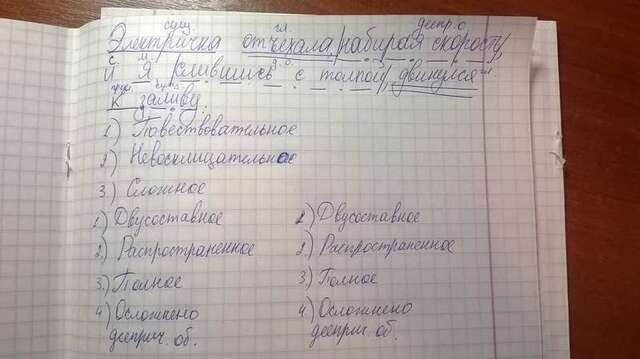 сущ. гл. деепр. о.
Электричка отъехала, набирая скорость,
с. м. д. о. гл.
и я, слившись с толпой, двинулся
сущ.
к заливу.
1.) Повествовательное
2.) Невосклицательное
3.) Сложное
1.) Двусоставное 1.) Двусоставное
2.) Распространенное 2.) Распространенное
3.) Полное 3.) Полное
4.) Осложнено 4.) Осложнено
дееприч. об. дееприч. об.